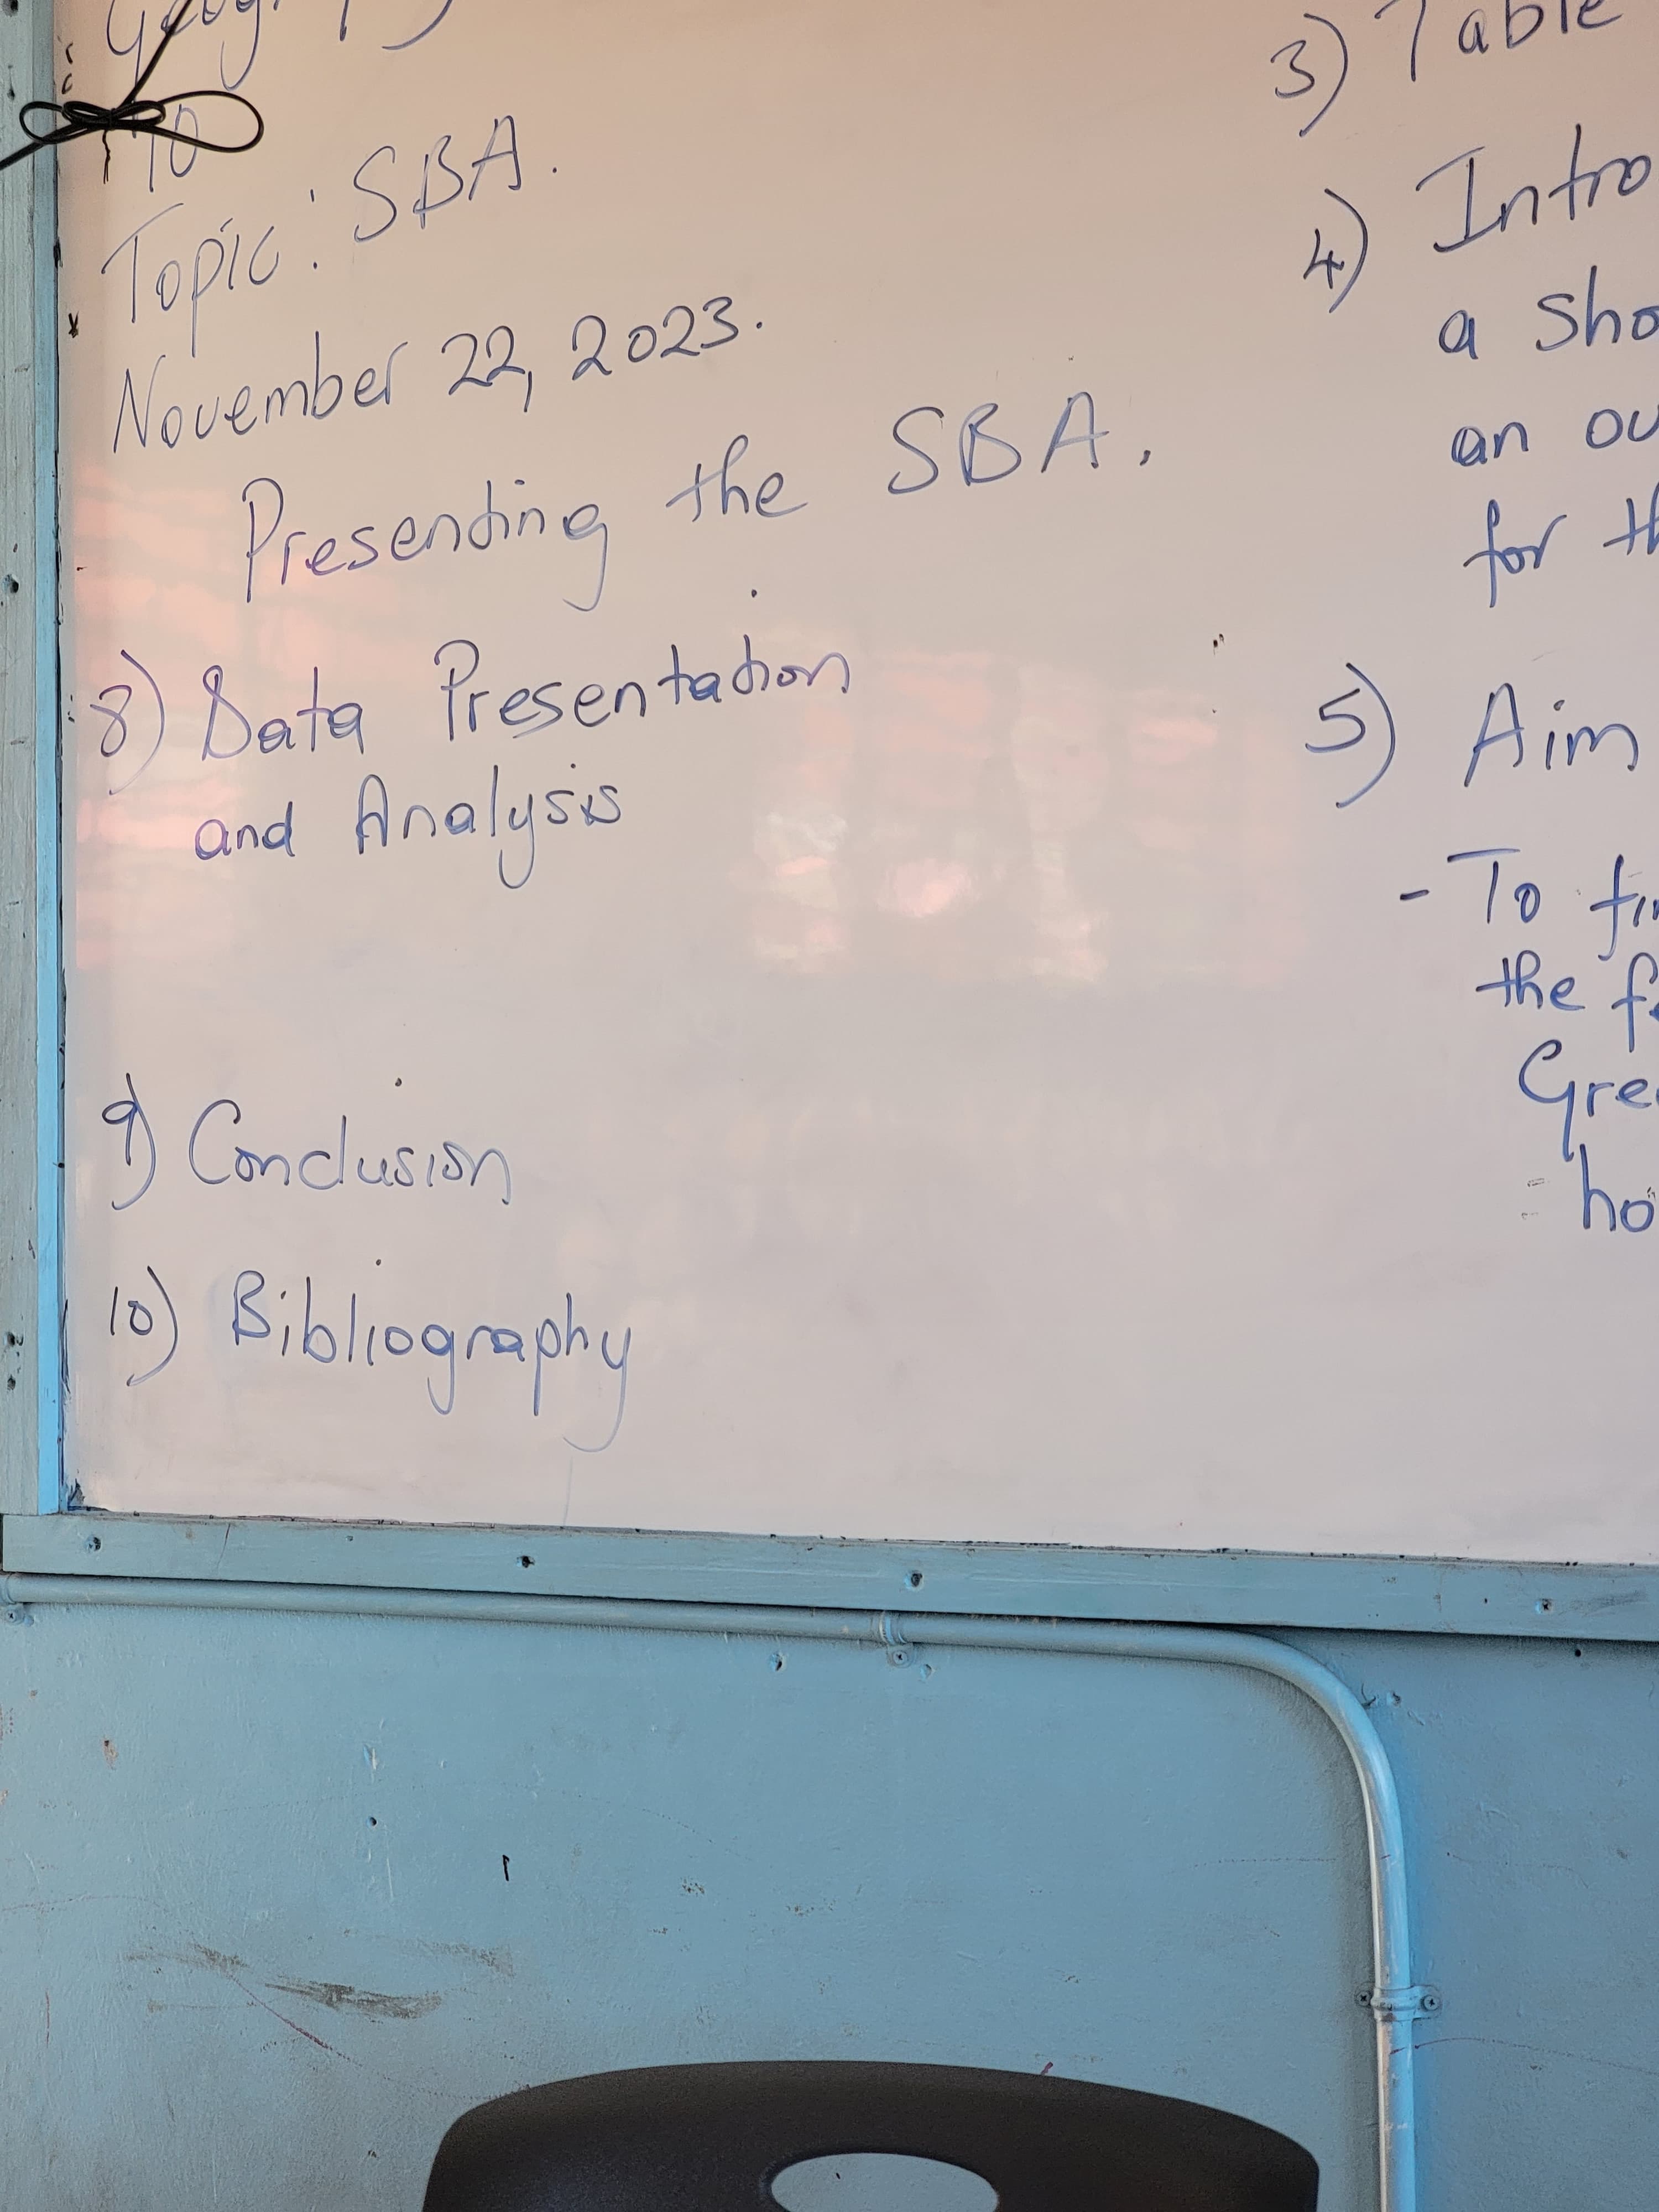 10
Topic: SBA.
November 22, 2023.
Presenting the SBA.
8) Data Presentation
and Analysis
9) Conclusion
10) Bibliography
3) Table
4) Intro
a sho
an ou
for th
5) Aim
- To fin
the fe
Gree
ho